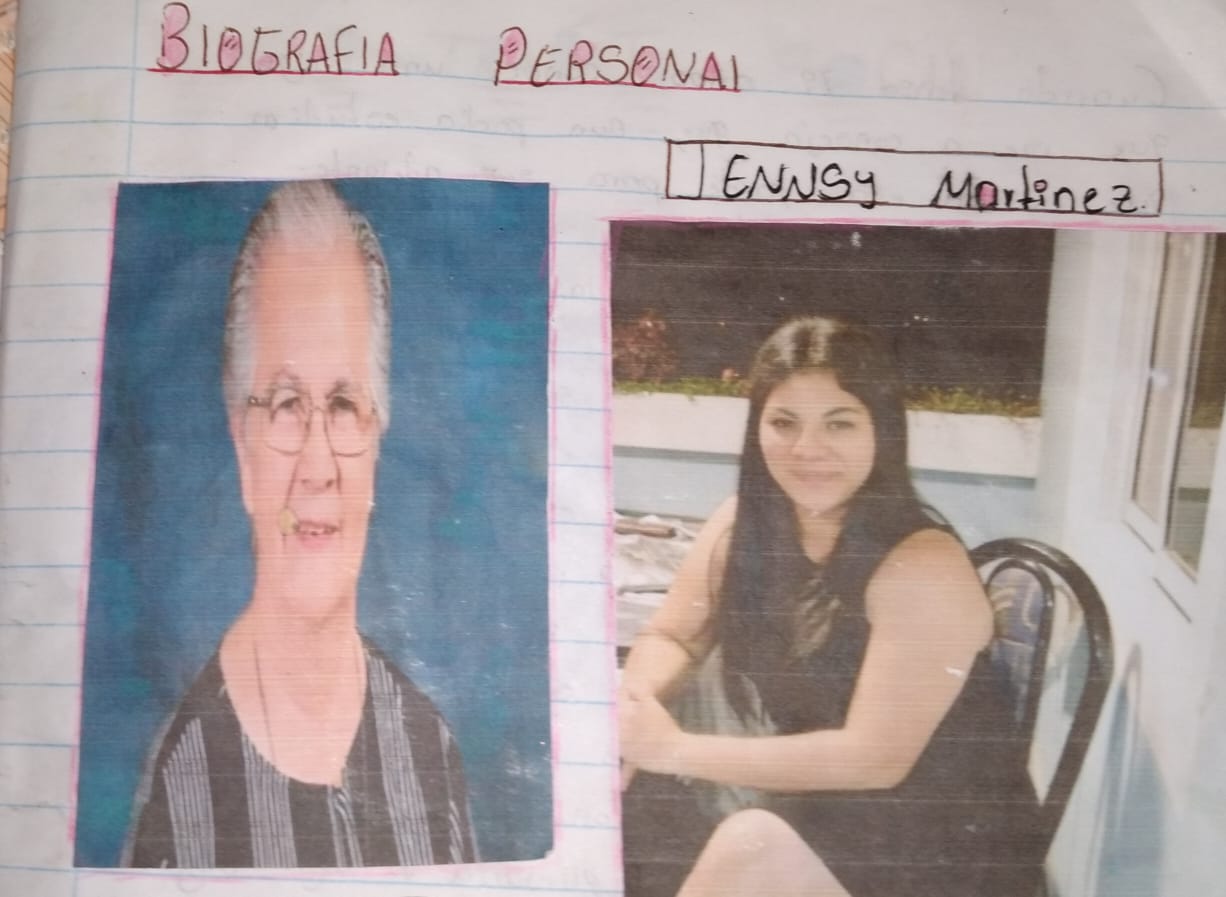 BIOGRAFIA PERSONAl
JENNSy Martinez.